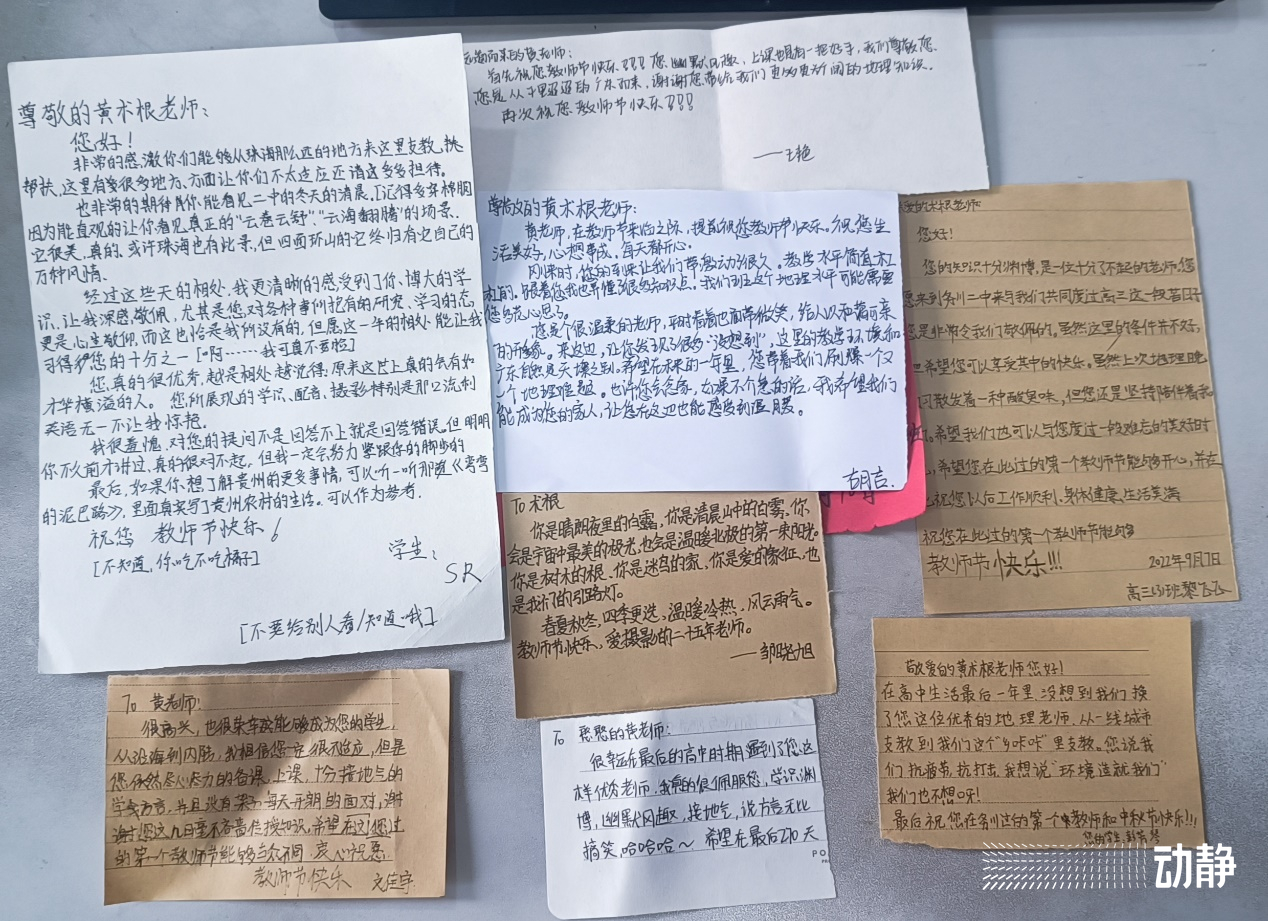 尊敬的黄术根老师：
您好！
非常的感激你们能够从珠海那么远的地方来这里支教、
帮扶，这里有着很多地方、方面让你们不太适应还请多多担待。
也非常的期待着你能看见二中的冬天的清晨。[记得多穿棉服]
因为能直观的让你看见真正的“云卷云舒”“云海翻腾”的场景.
它很美，真的，或许珠海也有此景，但四面环山的它终归有它自己的
万种风情.
经过这些天的相处，我更清晰的感受到了你、博大的学
识、让我深感敬佩，尤其是您对各种事例抱有的研究、学习的态，
更是心生敬仰，而这也恰是我所没有的，但愿这一年的相处能让我
习得您的十分之一 [啊……我可真不要脸]
您，真的很优秀，越是相处越觉得，原来这世上真的会有如
才华横溢的人。您所展现的学识、配音、摄影特别是那口流利
英语无一不让我惊艳.
我很羞愧，对您的提问不是回答不上就是回答错误，但明明
你不久前才讲过，真的很对不起。但我一定会努力紧跟你的脚步的
最后，如果你想了解贵州的更多事情，可以听一听那首《弯弯
的泥巴路》，里面真实写了贵州农村的生活。可以作为参考.
祝您 教师节快乐！
[不知道，你吃不吃橘子]
学生：
SR
[不要给别人看/知道哦]
远道而来的黄老师：
首先祝您教师节快乐！！！您幽默风趣，上课也是有一把好手，我们尊敬您.
您是从千里迢迢的广东而来，谢谢您带给我们更多更新阔的地理知识.
再次祝您教师节快乐！！！
——王艳
尊敬的黄术根老师：
黄老师，在教师节来临之际，提前祝您教师节快乐。祝您生
活美好，心想事成，每天都开心。
刚来时，您的到来让我们带激动了很久。教学水平简直杠
杠的。跟着您我也弄懂了很多知识点。我们班这个地理水平可能需要
您多费心思了。
您是个很温柔的老师，平时看着也面带微笑，给人以和蔼可亲
的形象。来这边，让您发现了很多“没想到”，这里的考虑环境和
广东自然是天壤之别。希望在未来的一年里，您带着我们刷爆一个又
一个地理难题。也许您会想家，如果不介意的话，我希望我们
能成为您的家人，让您在这边也能感受到温暖。
胡吉.
敬爱的术根老师
您好！
您的知识十分渊博，是一位十分了不起的老师.您
愿来到务川二中来与我们共同度过高三这一段苦日子
您是非常令我们敬佩的。虽然这里的条件并不好，
但希望您可以享受其中的快乐。虽然上次地理晚
习散发着一种酸臭味，但您还是坚持陪伴着我
们。希望我们也可以与您度过一段难忘的美好时
，希望您在此过的第一个教师节能够开心，并在
此祝您以后工作顺利、身体健康、生活美满
祝您在此过的第一个教师节能够
教师节快乐!!!
2022年9月7日
高三(3)班黎飞飞
To 术根
你是晴朗夜里的白露，你是清晨山中的白雾。你
会是宇宙中最美的极光，也会是温暖北极的第一束阳光。
你是树木的根、你是迷鸟的家，你是爱的象征，也
是我们的引路灯。
春夏秋冬，四季更迭，温暖冷热，风云雨气。
教师节快乐，爱摄影的二十五年老师。
——邹晓旭
To 黄老师！
很高兴，也很荣幸我能够成为您的学生，
从沿海到内陆，我相信您一定很不适应，但是
您依然尽心尽力的备课、上课，十分接地气的
学会方言，并且没有架子每天开朗的面对，谢
谢您这几日至不吝啬传授知识，希望在这您过
的第一个教师节能够与众不同，衷心祝愿
教师节快乐 文佳宇
To 愿愿的黄老师：
很幸运在最后的高中时期遇到了您这
样优秀老师，我真的很佩服您，学识渊
博，幽默风趣，接地气，说方言无比
搞笑，哈哈哈～ 希望在最后270天
敬爱的黄术根老师您好！
在高中生活最后一年里没想到我们换
了您这位优秀的地理老师，从一线城市
支教到我们这个“乡咔咔”里支教。您说我
们抗疲劳，抗打击，我想说“环境造就我们”
我们也不想呀！
最后祝您在务川过的第一个教师和中秋节快乐!!!
您的学生，彭芳琴
动静